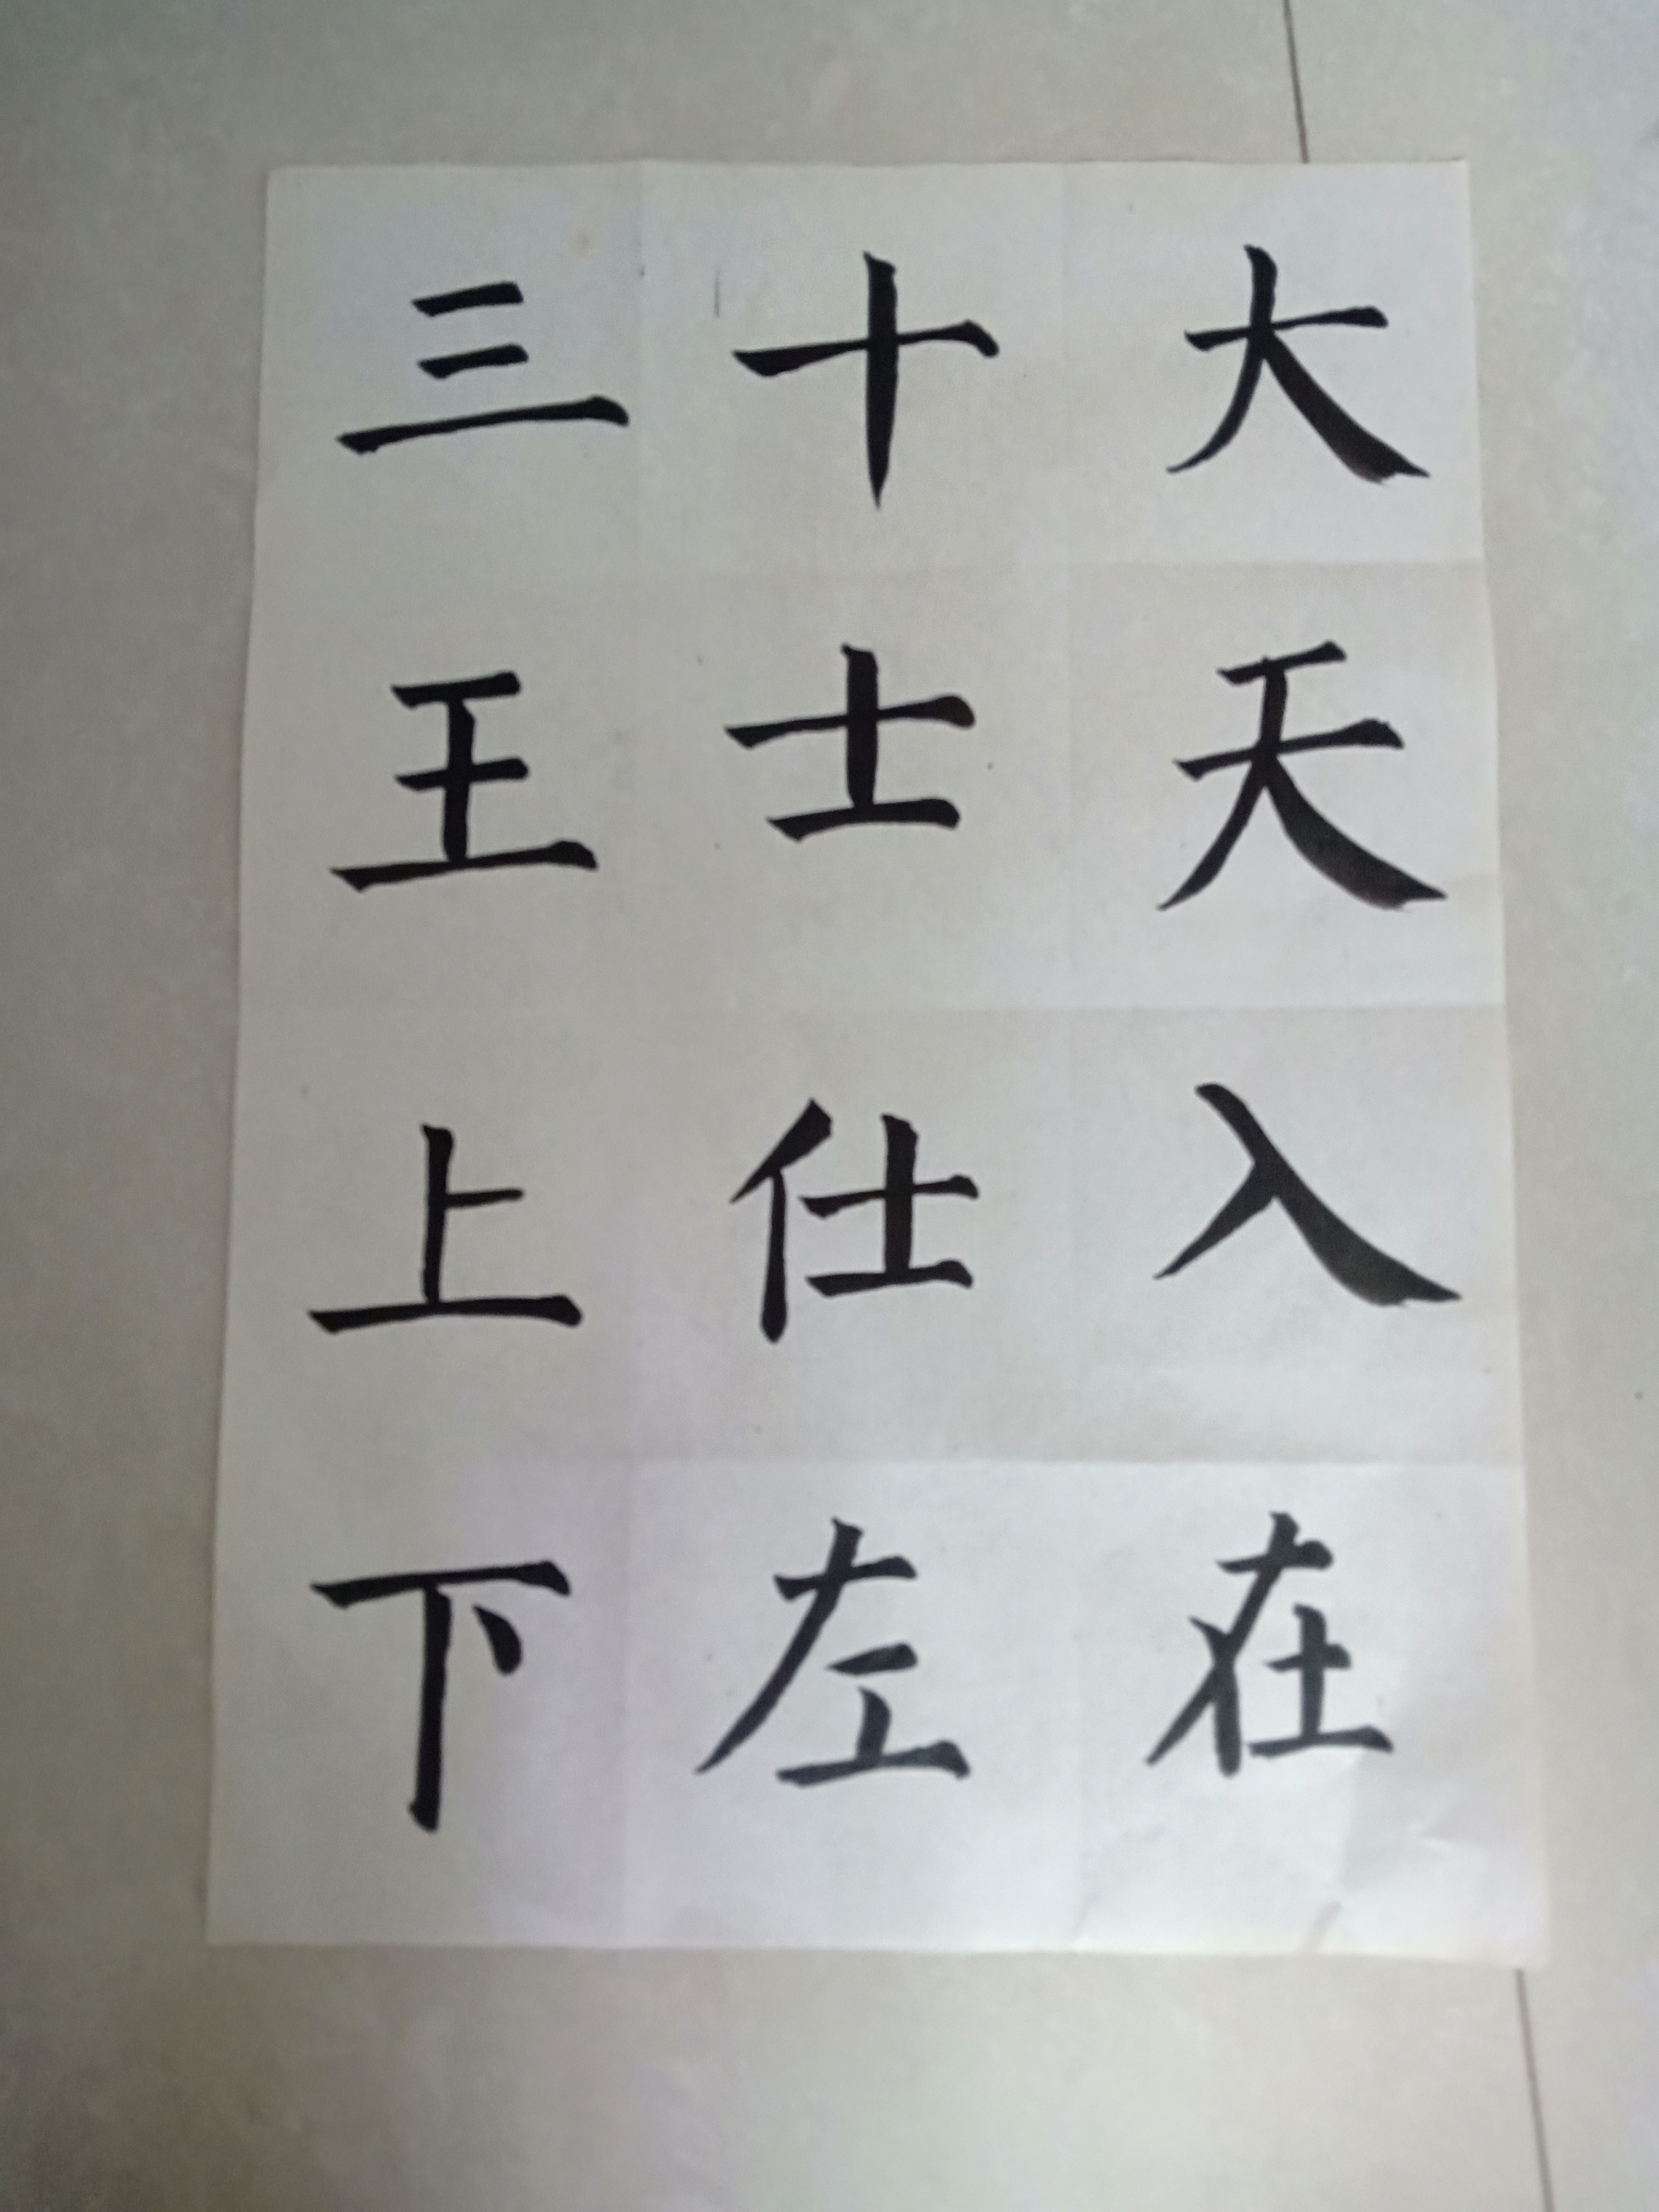 三十大
王士天
上仕入
下左在